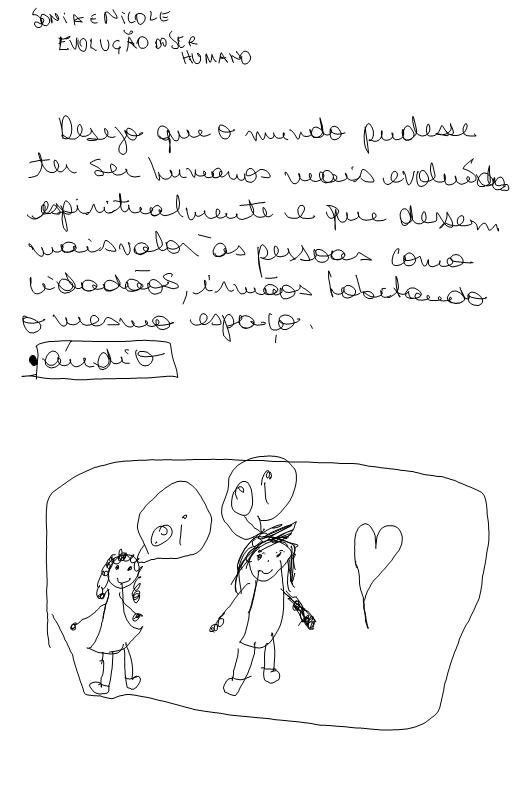 SONIA E NICOLE
EVOLUÇÃO DO SER
HUMANO
Desejo que o mundo pudesse
ter ser humanos mais evoluídos
espiritualmente e que dessem
mais valor as pessoas como
cidadãos, irmãos habitando
o mesmo espaço.
áudio
oi
oi